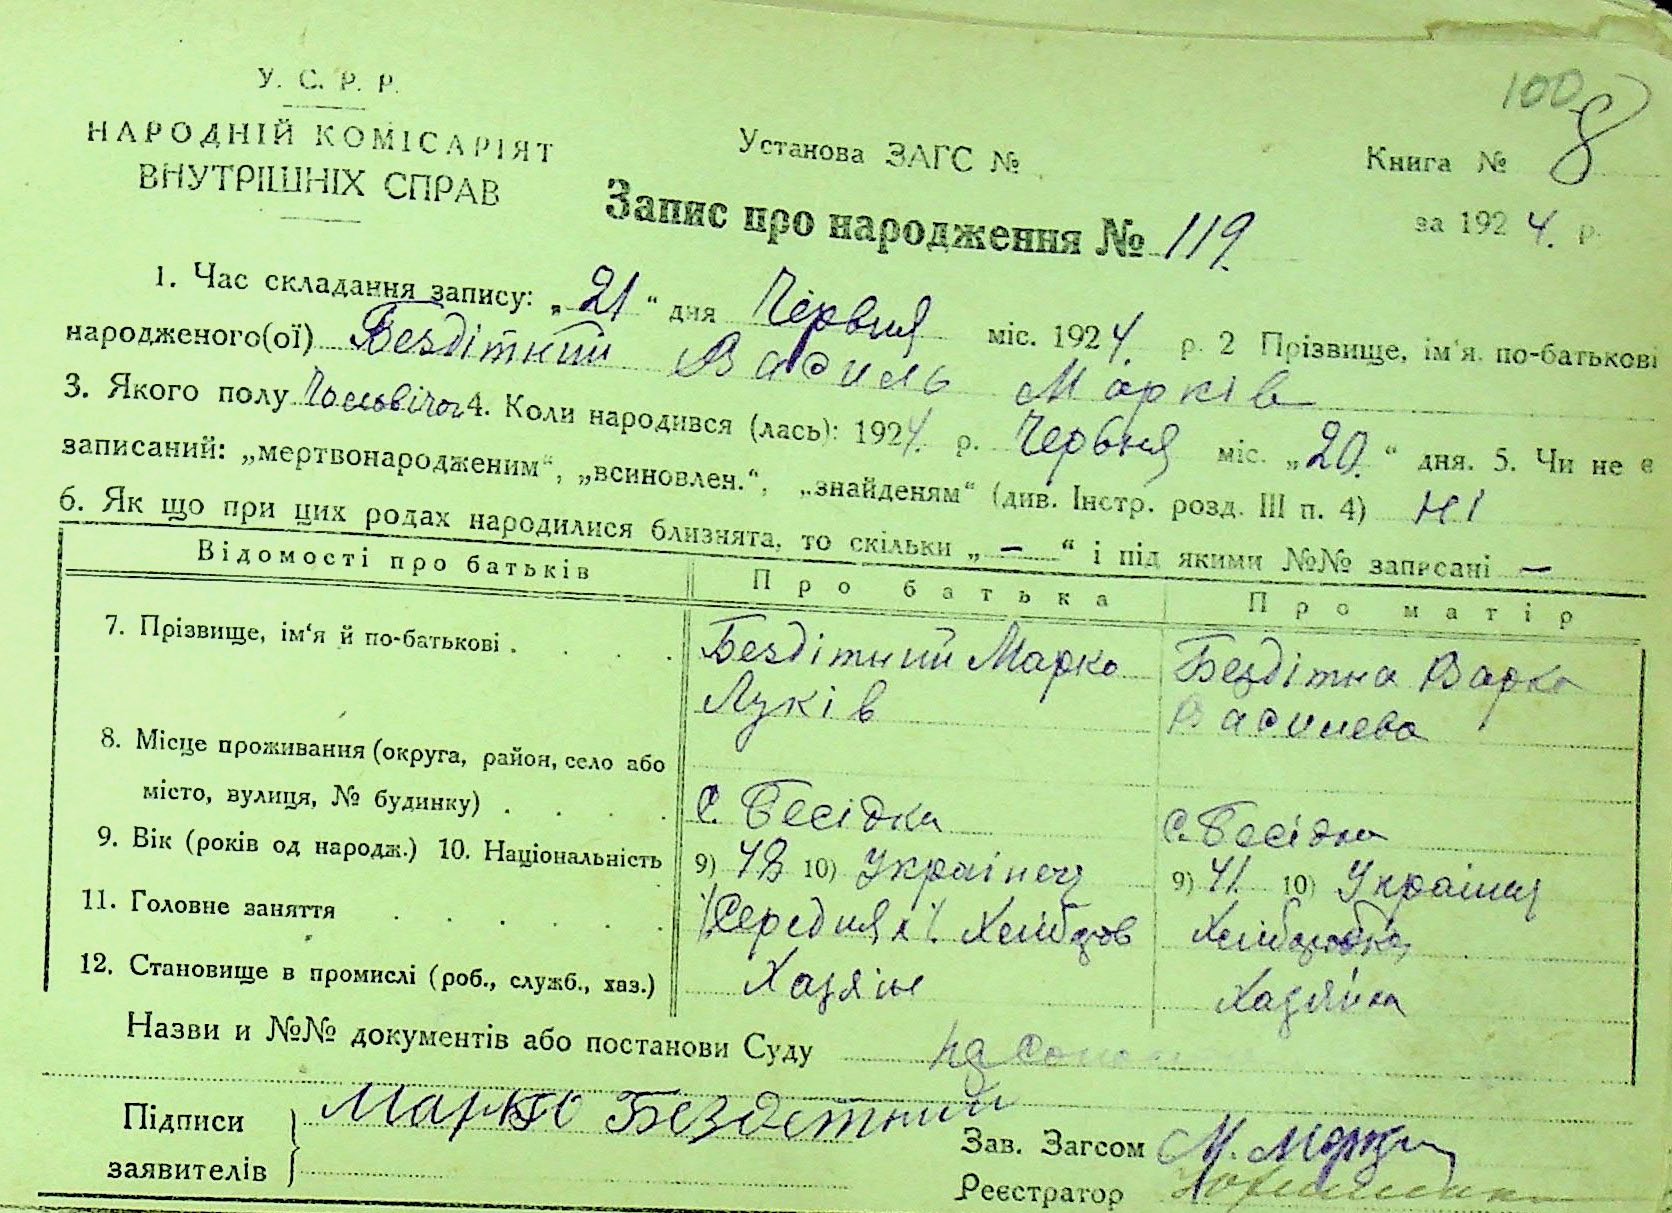 У. С. Р. Р.
НАРОДНІЙ КОМІСАРІЯТ
ВНУТРІШНІХ СПРАВ
100
Установа ЗАГС №
Книга № 8
Запис про народження № 119.
за 1924. р.
1. Час складання запису: „21“ дня Червня міс. 1924. р. 2 Прізвище, ім'я, по-батькові
народженого(ої) Бездітний Василь Марків
3. Якого полу Чоловічог 4. Коли народився (лась): 1924. р. Червня міс. „20.“ дня. 5. Чи не є
записаний: „мертвонародженим“, „всиновлен.“, „знайденям“ (див. Інстр. розд. III п. 4) Ні
6. Як що при цих родах народилися близнята, то скільки „—“ і під якими №№ записані —
Відомості про батьків Про батька Про матір
7. Прізвище, ім'я й по-батькові . . . . Бездітний Марко Бездітна Варка
Луків Василева
8. Місце проживання (округа, район, село або
місто, вулиця, № будинку) . . . . С. Бесідка С. Бесідка
9. Вік (років од народж.) 10. Національність 9) 42 10) Українец 9) 41. 10) Українц
11. Головне заняття . . . . . Середняк Хлібороб Хліборобка
12. Становище в промислі (роб., служб., хаз.) Хазяін Хазяйка
Назви и №№ документів або постанови Суду
Підписи
заявителів
Марко Бездетний
Зав. Загсом М.
Реєстратор